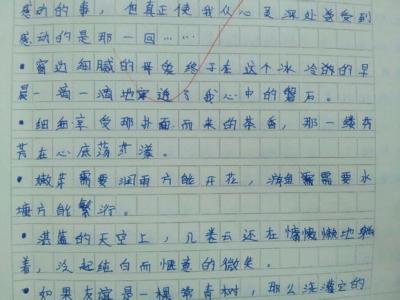 感动的事，但真正使我从心灵深处感受到
感动的是那一回……
•窗边细腻的母爱终于在这个冰冷的早
晨一滴一滴地穿透了我心中的磐石。
•细细享受那扑面而来的茶香，那一缕芬
芳在心底荡开漾。
•嫩芽需要润雨方能开花，游鱼需要水
塘方能繁衍。
•湛蓝的天空上，几卷云还在慵懒地躺
着，泛起纯白而惬意的微笑。
•如果友谊是一棵常青树，那么浇灌它的